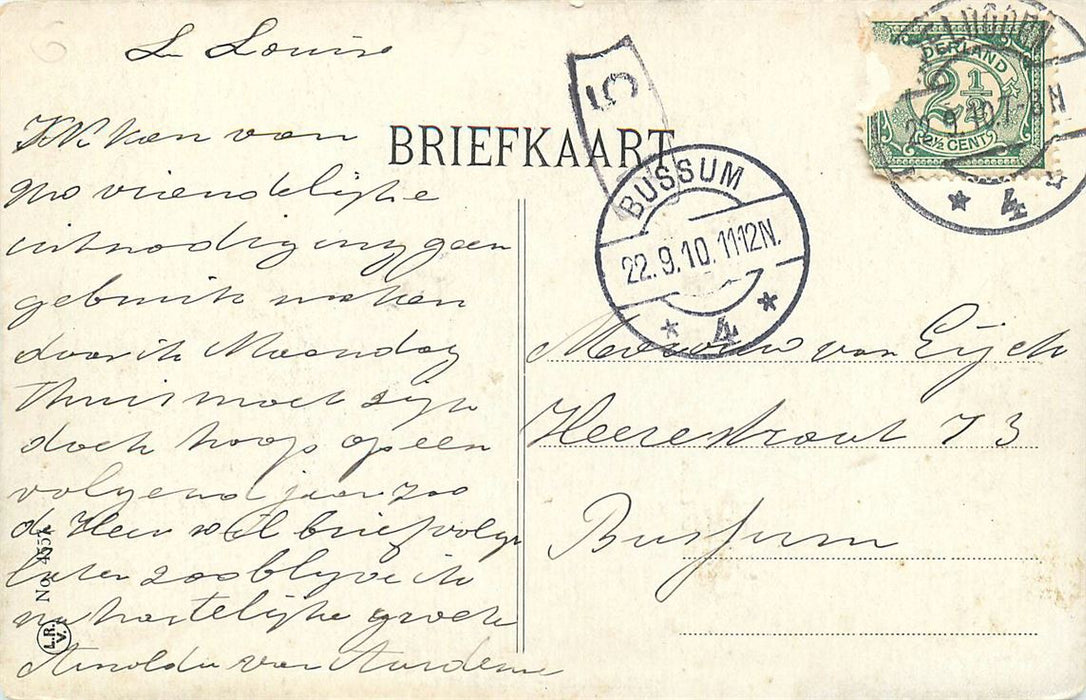 L Louise
Ik kan van
uwe vriendelijke
uitnodiging geen
gebruik maken
daar ik Maandag
thuis moet zijn
doch hoop op een
volgend jaar zoo
de Heer wil brief volgt
later zoo blyve ik
na hartelijke groete
Arnolda van
No. 4557
L.R.
V.
BRIEFKAART
5
BUSSUM
22.9.10.11-12N.
4
NEDERLAND
2½
2½ CENT
22.9.10.7-8N
4
Mevrouw van Eijck
Heerestraat 73
Bussum